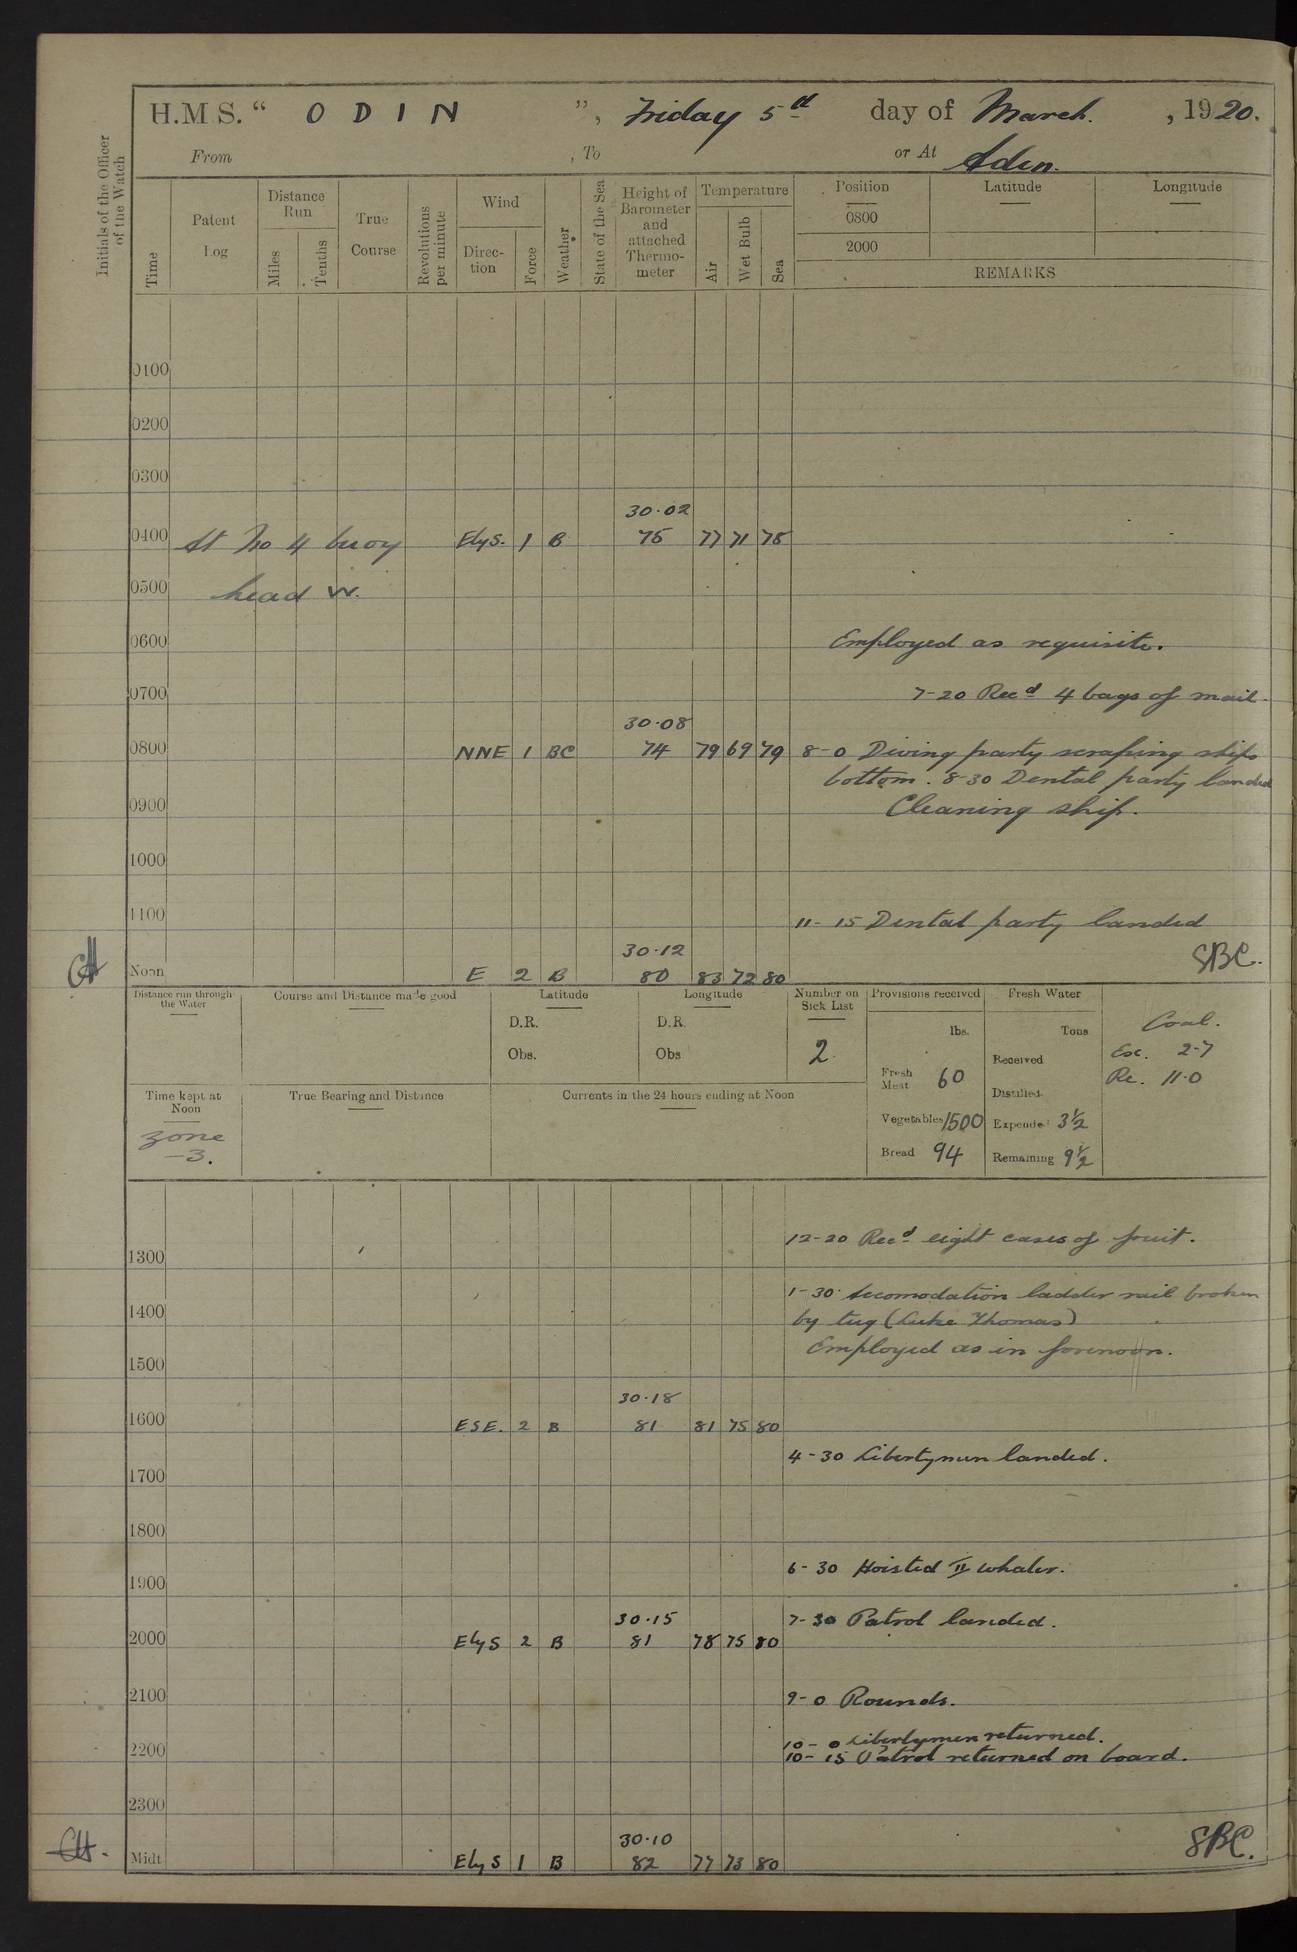 H.M.S. “ ODIN ”, Friday 5th day of March. , 1920.
From , To or At Aden.
Initials of the Officer of the Watch
Time
Patent Log
Distance Run
Miles
Tenths
True Course
Revolutions per minute
Wind
Direction
Force
Weather
State of the Sea
Height of Barometer and attached Thermometer
Temperature
Air
Wet Bulb
Sea
Position Latitude Longitude
0800
2000
REMARKS
0100
0200
0300
30·02
0400 At No 4 buoy ElyS. 1 B 75 77 71 78
0500 head W.
0600 Employed as requisite.
0700 7-20 Recd 4 bags of mail.
30·08
0800 NNE 1 BC 74 79 69 79 8-0 Diving party scraping ships
bottom. 8-30 Dental party landed
0900 Cleaning ship.
1000
1100 11-15 Dental party landed
30·12
SBC.
CH Noon E 2 B 80 83 72 80
Distance run through the Water
Course and Distance made good
Latitude
D.R.
Obs.
Longitude
D.R.
Obs
Number on Sick List
2
Provisions received
lbs.
Fresh Meat 60
Vegetables 1500
Bread 94
Fresh Water
Tons
Received
Distilled
Expended 3½
Remaining 9½
Coal.
Exc. 2-7
Re. 11·0
Time kept at Noon
Zone
-3.
True Bearing and Distance
Currents in the 24 hours ending at Noon
12-20 Recd eight cases of fruit.
1300
1-30 Accomodation ladder rail broken
1400 by tug (Luke Thomas)
Employed as in forenoon.
1500
30·18
1600 ESE. 2 B 81 81 75 80
4-30 Libertymen landed.
1700
1800
6-30 Hoisted II whaler.
1900
30·15 7-30 Patrol landed.
2000 ElyS 2 B 81 78 75 80
2100 9-0 Rounds.
10-0 Libertymen returned.
2200 10-15 Patrol returned on board.
2300
30·10
CH. SBC.
Midt ElyS 1 B 82 77 73 80